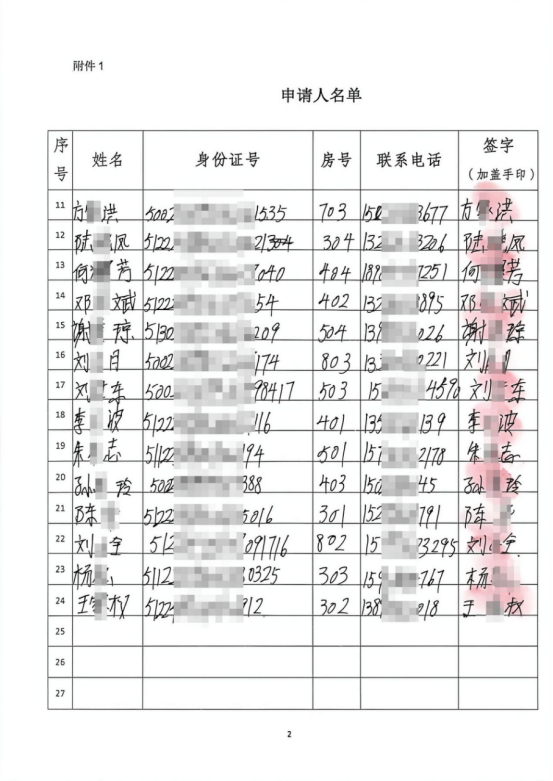 附件 1
申请人名单
序号 姓名 身份证号 房号 联系电话 签字（加盖手印）
11 方 洪 5002 1535 703 152 3677 方 洪
12 陆 凤 5122 304 132 3206 陆 凤
13 何 芳 5122 7040 404 189 7251 何 芳
14 邓 斌 5122 54 402 132 895 邓 斌
15 谢 琼 5130 209 504 139 026 谢 琼
16 刘 月 5002 174 803 133 0221 刘
17 刘 东 500 98417 503 15 4590 刘 东
18 李 波 5122 116 401 135 139 李 波
19 朱 志 5112 194 501 157 2178 朱 志
20 孙 玲 500 388 403 150 45 孙 玲
21 陈 5122 5016 301 152 791 陈
22 刘 全 512 091716 802 15 73295 刘 全
23 杨 5112 0325 303 159 767 杨
24 王 权 5122 912 302 138 018 王 权
25
26
27
2